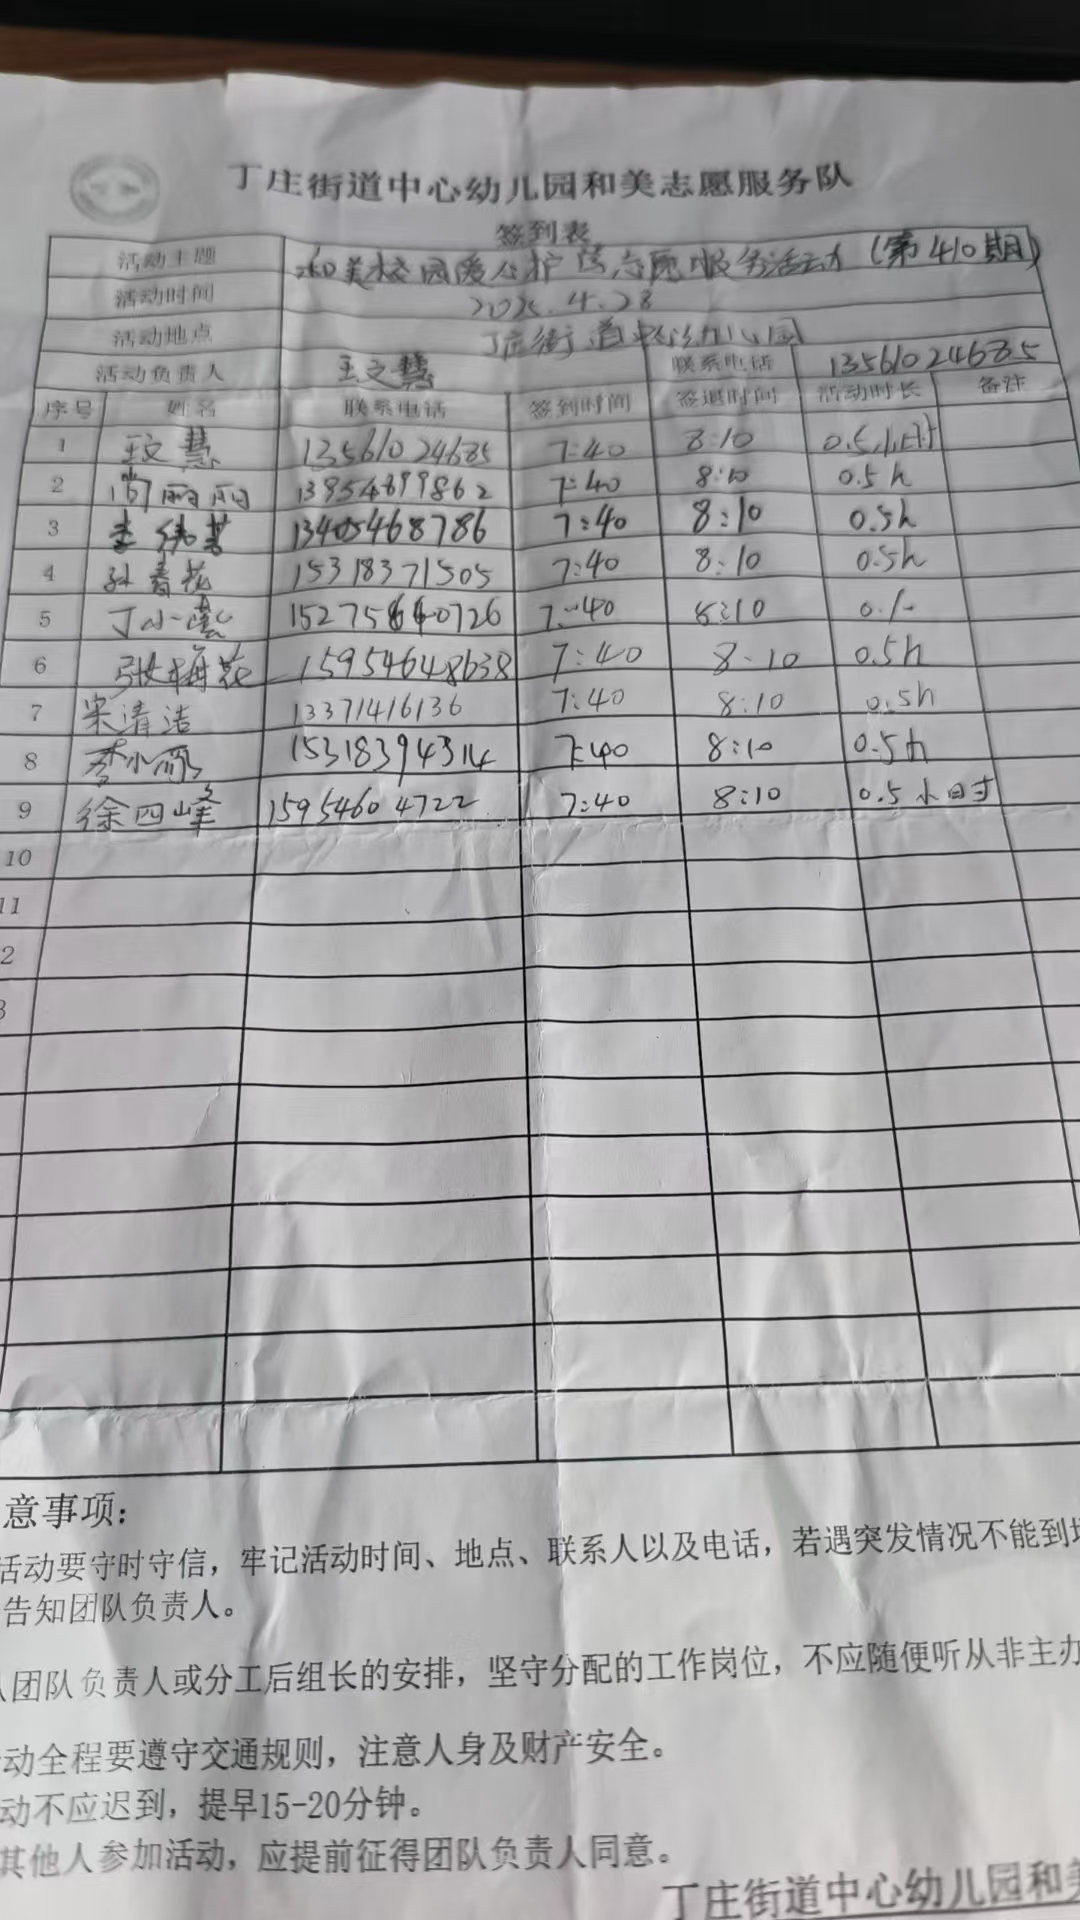 丁庄街道中心幼儿园和美志愿服务队
签到表
活动主题 和美校园爱心护苗志愿服务活动（第410期）
活动时间 2025.4.28
活动地点 丁庄街道中心幼儿园
活动负责人 王文慧 联系电话 13561024685
序号 姓名 联系电话 签到时间 签退时间 活动时长 备注
1 王文慧 13561024685 7:40 8:10 0.5小时
2 尚丽丽 13954899862 7:40 8:10 0.5h
3 李 13405468786 7:40 8:10 0.5h
4 孙春花 15318371505 7:40 8:10 0.5h
5 丁小 7:40 8:10
6 张梅花 15954648638 7:40 8:10 0.5h
7 宋清洁 13371416136 7:40 8:10 0.5h
8 李小 15318394314 7:40 8:10 0.5h
9 徐四峰 15954604722 7:40 8:10 0.5小时
10
11
2
3
意事项：
活动要守时守信，牢记活动时间、地点、联系人以及电话，若遇突发情况不能到场
告知团队负责人。
团队负责人或分工后组长的安排，坚守分配的工作岗位，不应随便听从非主办
动全程要遵守交通规则，注意人身及财产安全。
动不应迟到，提早15-20分钟。
其他人参加活动，应提前征得团队负责人同意。
丁庄街道中心幼儿园和美